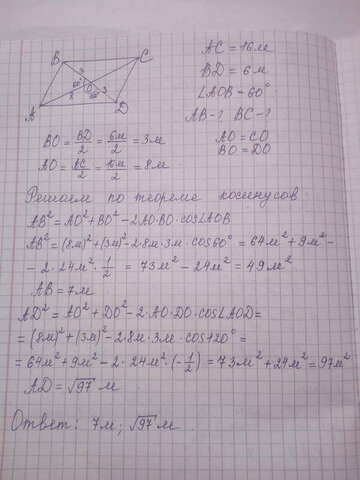 B C
3
60° O 3
8 60°
A D
AC = 16м
BD = 6м
∠AOB = 60°
AB-? BC-?
AO = CO
BO = DO
BO = BD/2 = 6м/2 = 3м
AO = AC/2 = 16м/2 = 8м
Решаем по теореме косинусов
AB² = AO² + BO² - 2AO·BO·cos∠AOB
AB² = (8м)² + (3м)² - 2·8м·3м·cos60° = 64м² + 9м² -
- 2·24м²·1/2 = 73м² - 24м² = 49м²
AB = 7м
AD² = AO² + DO² - 2·AO·DO·cos∠AOD =
= (8м)² + (3м)² - 2·8м·3м·cos120° =
= 64м² + 9м² - 2·24м²·(-1/2) = 73м² + 24м² = 97м²
AD = √97 м
Ответ: 7м; √97 м.